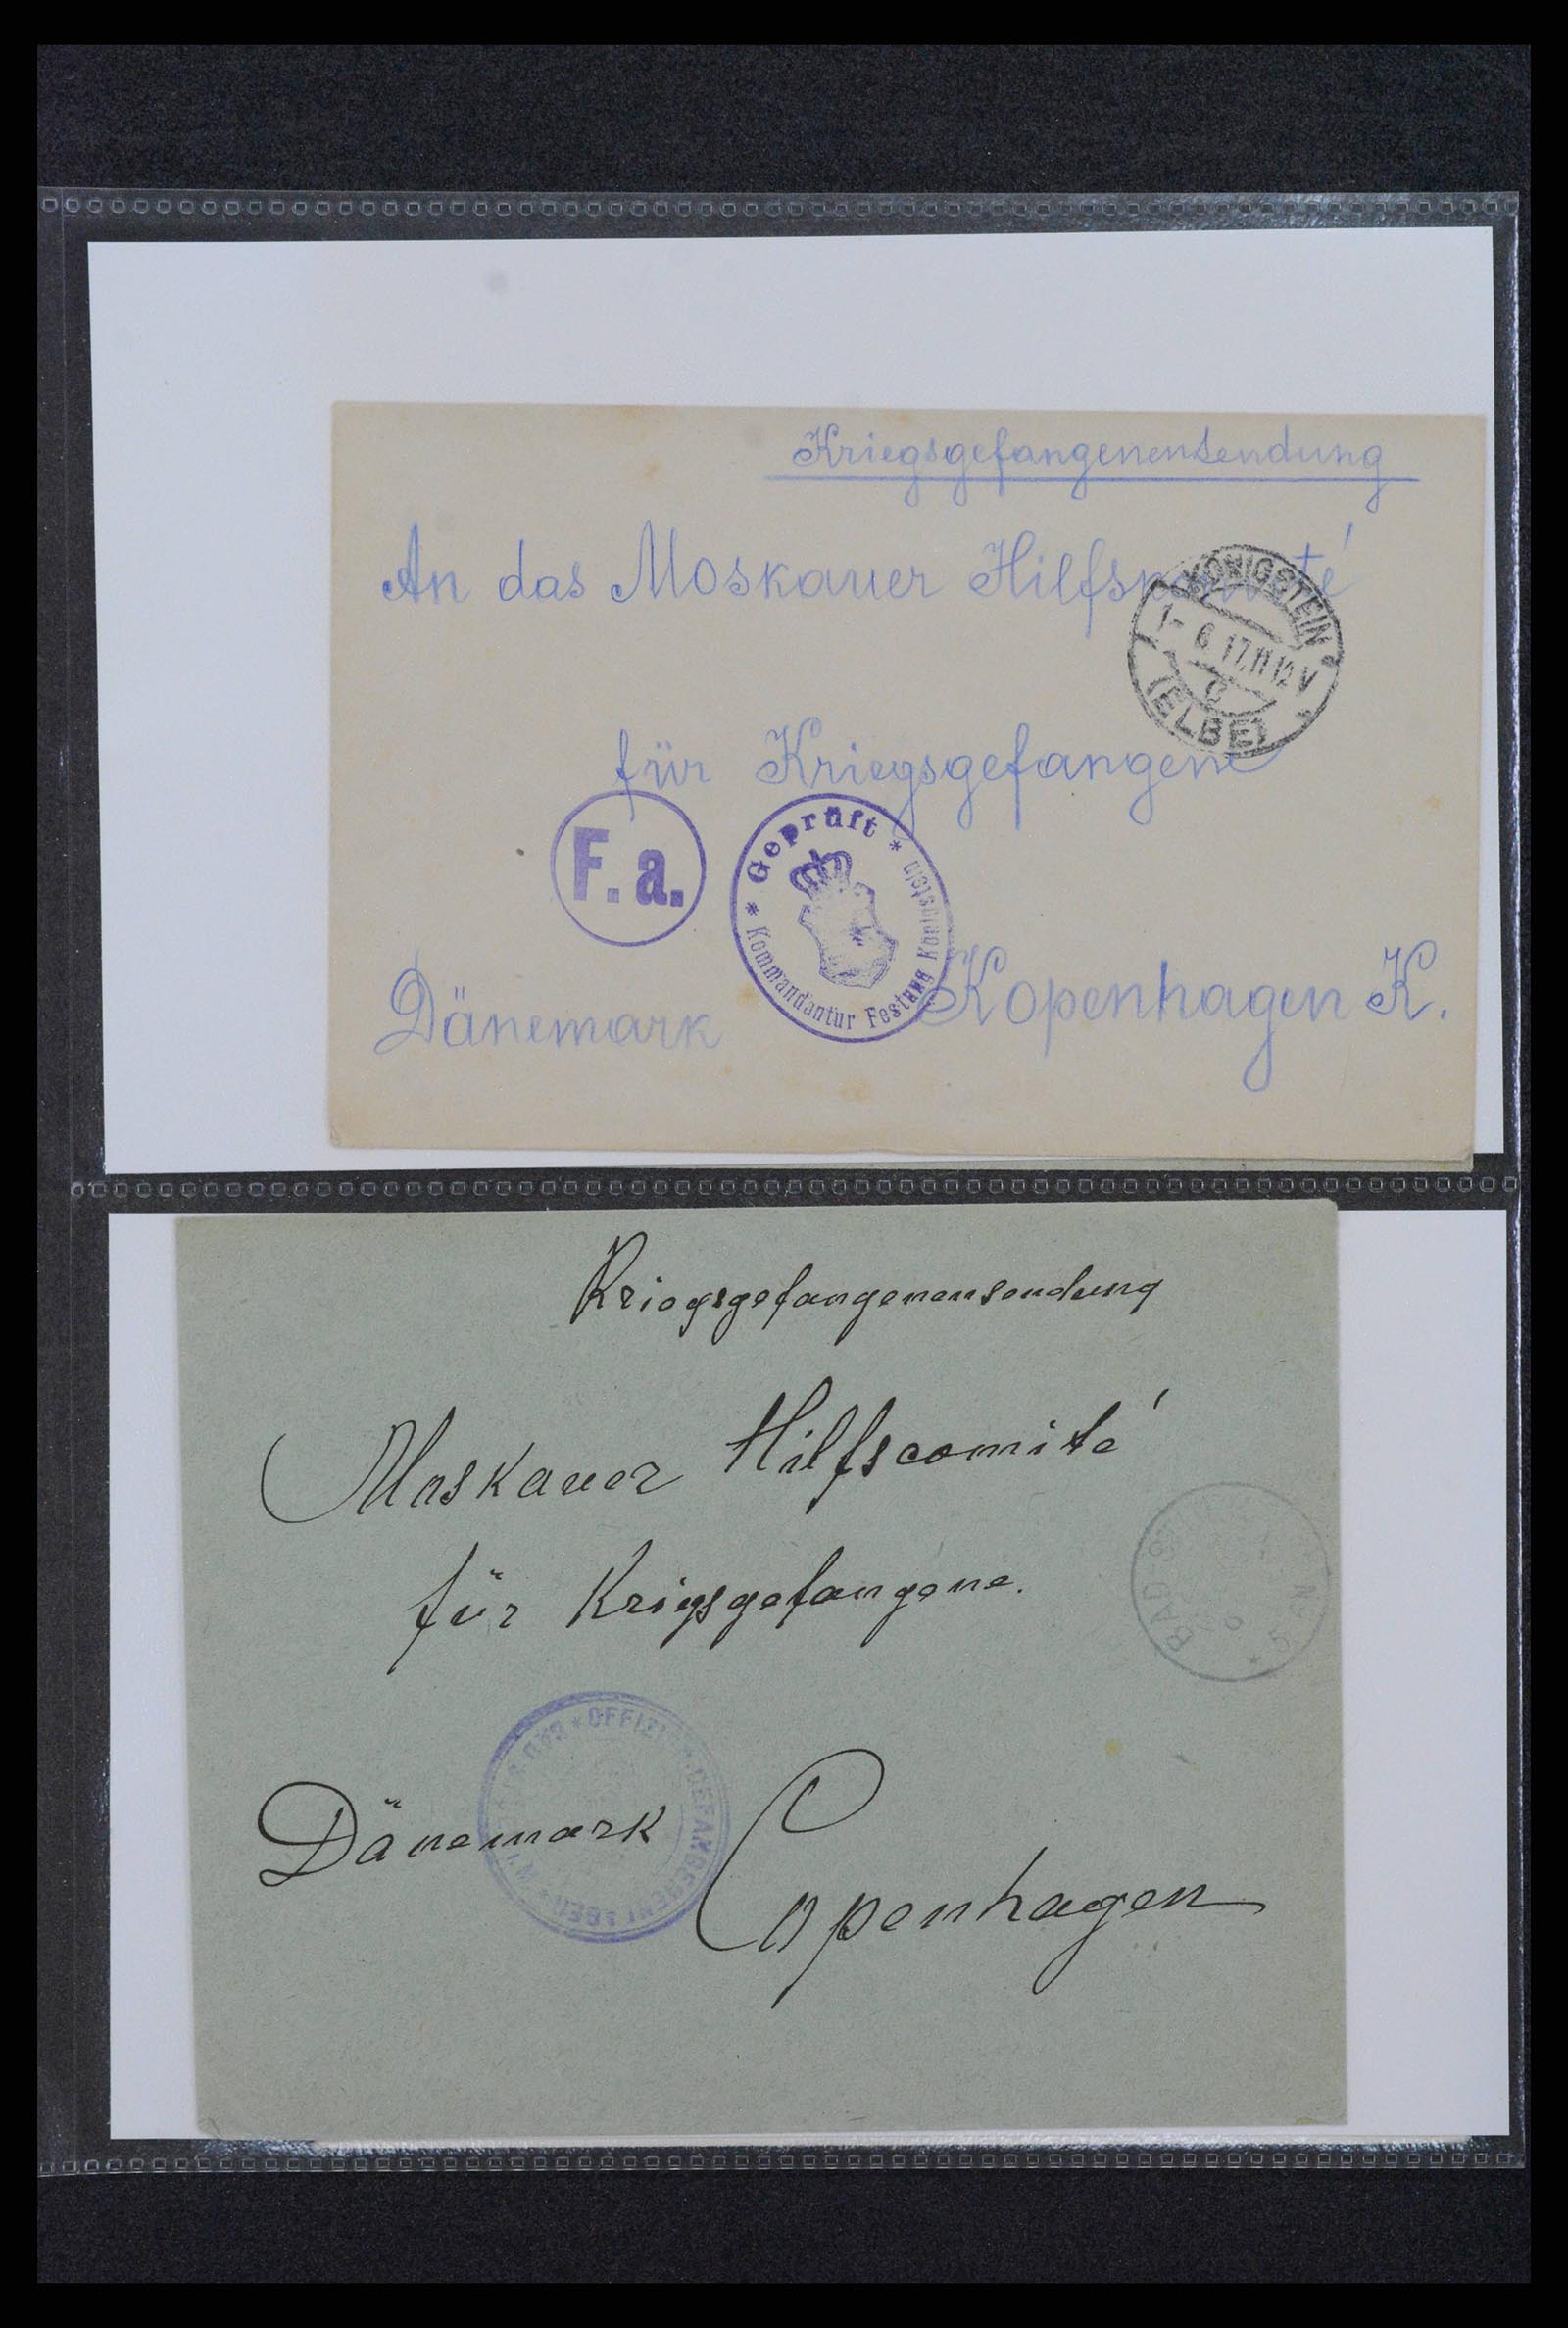 Kriegsgefangenensendung
An das Moskauer Hilfskomité
KÖNIGSTEIN
1-6 17.11-12V
c
(ELBE)
für Kriegsgefangene
F.a.
* Geprüft *
Kommandantur Festung Königstein
Dänemark Kopenhagen K.
Kriegsgefangenensendung
Moskauer Hilfscomité
für Krigsgefangene.
BAD
* OFFIZIER GEFANGENENLAGER *
Dänemark Copenhagen